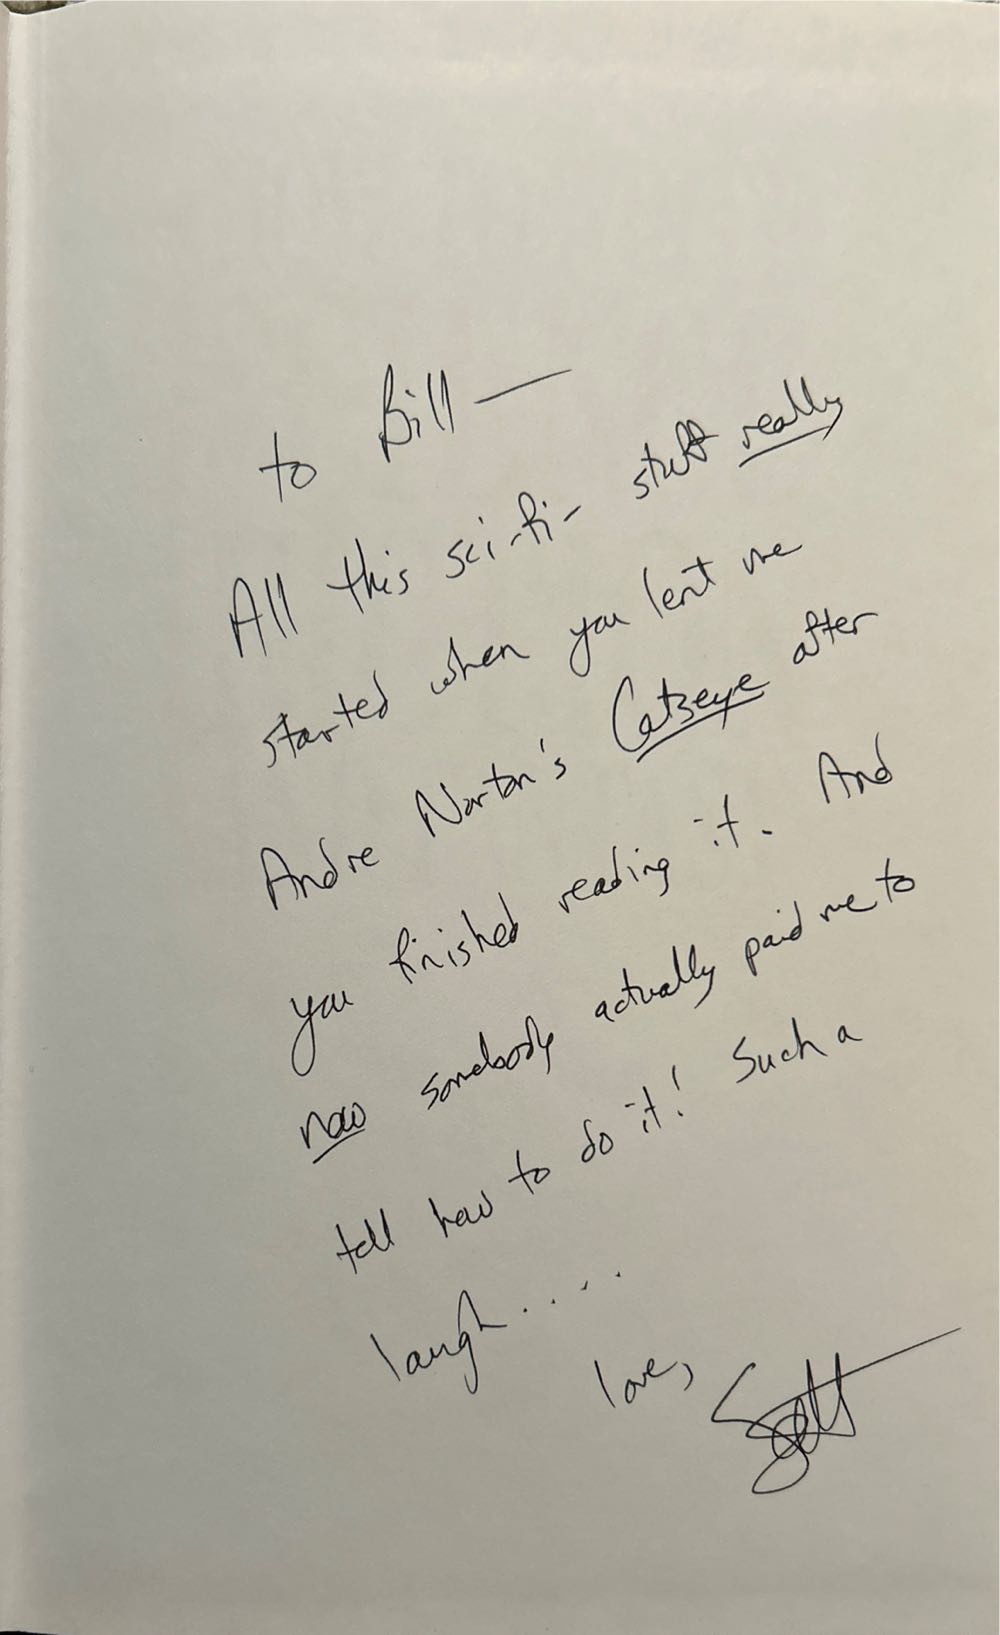 to Bill —
All this sci-fi- stuff really
started when you lent me
Andre Norton's Catseye after
you finished reading it. And
now somebody actually paid me to
tell how to do it! Such a
laugh.....
love,
Scott